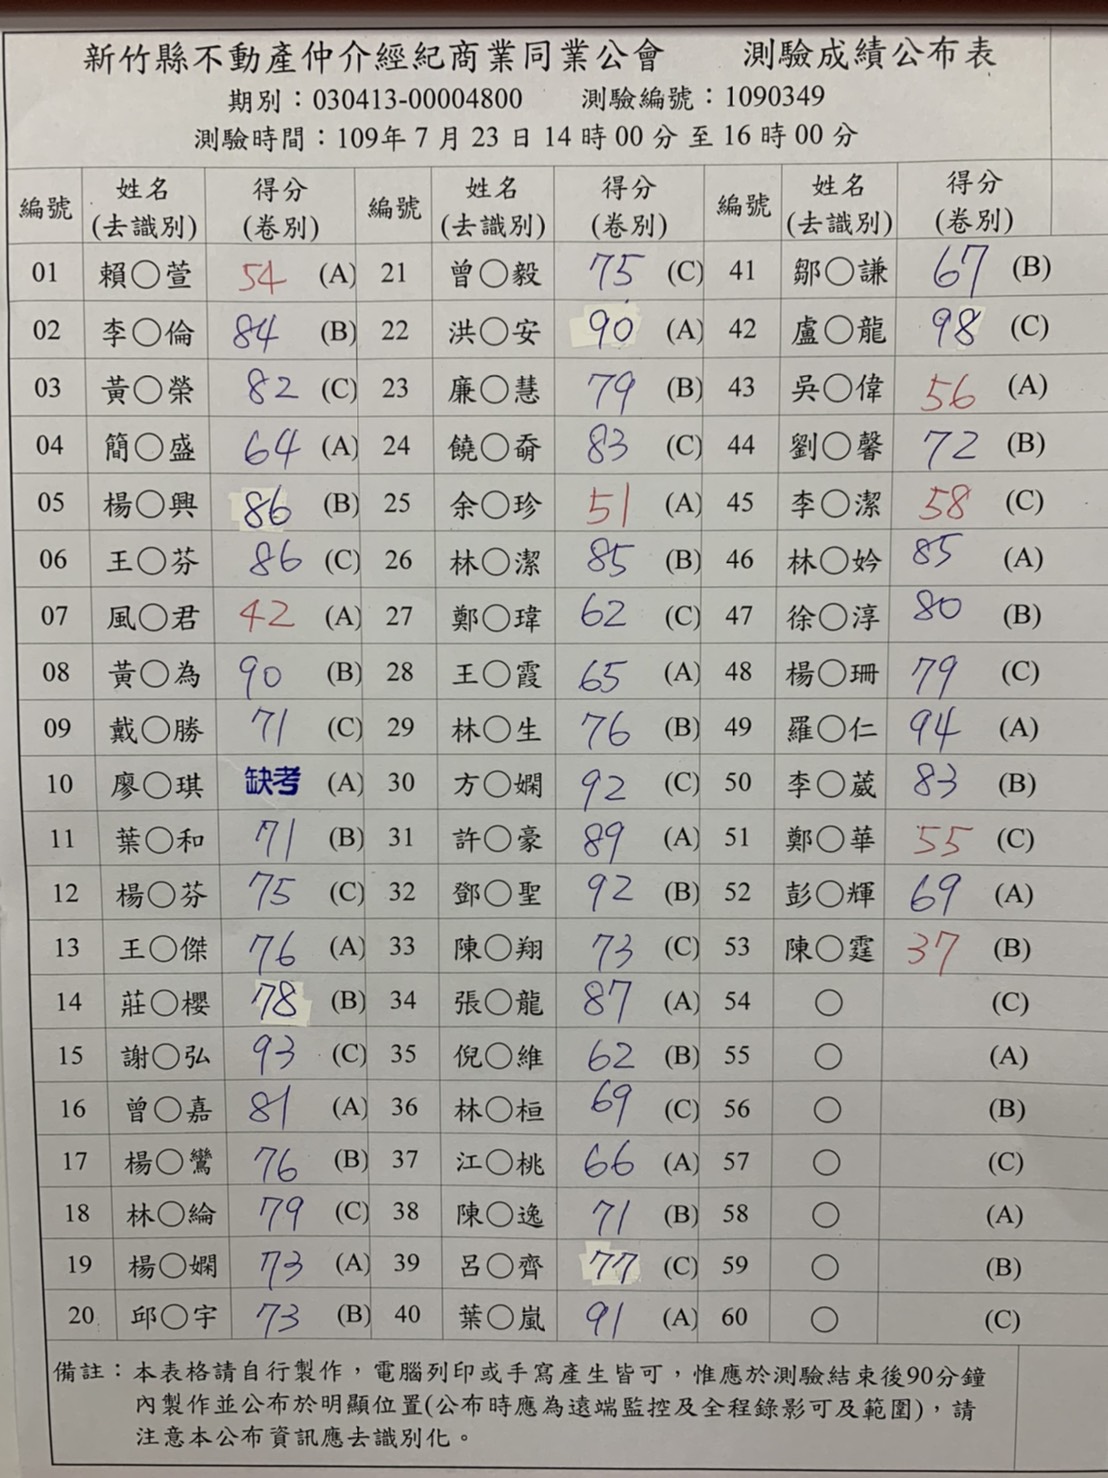 新竹縣不動產仲介經紀商業同業公會 測驗成績公布表
期別：030413-00004800 測驗編號：1090349
測驗時間：109年 7 月 23 日 14 時 00 分 至 16 時 00 分
編號 姓名(去識別) 得分(卷別) 編號 姓名(去識別) 得分(卷別) 編號 姓名(去識別) 得分(卷別)
01 賴○萱 54 (A) 21 曾○毅 75 (C) 41 鄒○謙 67 (B)
02 李○倫 84 (B) 22 洪○安 90 (A) 42 盧○龍 98 (C)
03 黃○榮 82 (C) 23 廉○慧 79 (B) 43 吳○偉 56 (A)
04 簡○盛 64 (A) 24 饒○奣 83 (C) 44 劉○馨 72 (B)
05 楊○興 86 (B) 25 余○珍 51 (A) 45 李○潔 58 (C)
06 王○芬 86 (C) 26 林○潔 85 (B) 46 林○妗 85 (A)
07 風○君 42 (A) 27 鄭○瑋 62 (C) 47 徐○淳 80 (B)
08 黃○為 90 (B) 28 王○霞 65 (A) 48 楊○珊 79 (C)
09 戴○勝 71 (C) 29 林○生 76 (B) 49 羅○仁 94 (A)
10 廖○琪 缺考 (A) 30 方○嫻 92 (C) 50 李○葳 83 (B)
11 葉○和 71 (B) 31 許○豪 89 (A) 51 鄭○華 55 (C)
12 楊○芬 75 (C) 32 鄧○聖 92 (B) 52 彭○輝 69 (A)
13 王○傑 76 (A) 33 陳○翔 73 (C) 53 陳○霆 37 (B)
14 莊○櫻 78 (B) 34 張○龍 87 (A) 54 ○ (C)
15 謝○弘 93 (C) 35 倪○維 62 (B) 55 ○ (A)
16 曾○嘉 81 (A) 36 林○桓 69 (C) 56 ○ (B)
17 楊○鸞 76 (B) 37 江○桃 66 (A) 57 ○ (C)
18 林○綸 79 (C) 38 陳○逸 71 (B) 58 ○ (A)
19 楊○嫻 73 (A) 39 呂○齊 77 (C) 59 ○ (B)
20 邱○宇 73 (B) 40 葉○嵐 91 (A) 60 ○ (C)
備註：本表格請自行製作，電腦列印或手寫產生皆可，惟應於測驗結束後90分鐘
內製作並公布於明顯位置(公布時應為遠端監控及全程錄影可及範圍)，請
注意本公布資訊應去識別化。